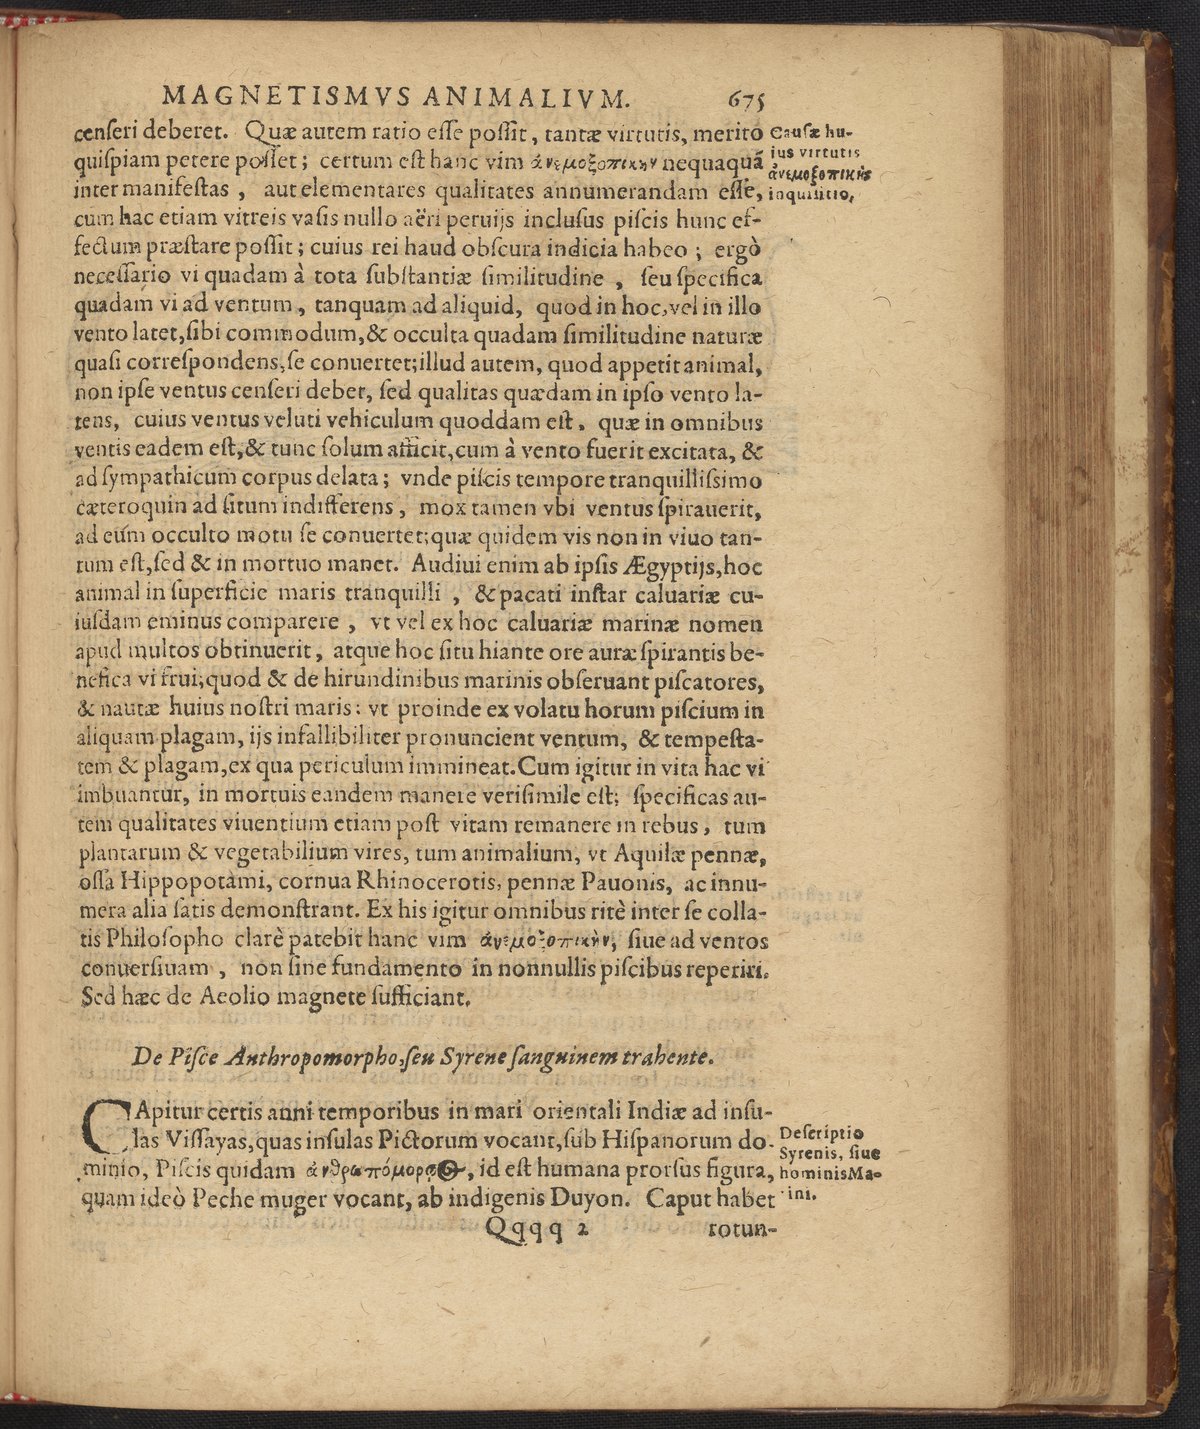 MAGNETISMVS ANIMALIVM. 675
cenſeri deberet. Quæ autem ratio eſſe poſſit, tantæ virtutis, meritò
quiſpiam petere poſſet; certum eſt hanc vim ἀνεμοξοπικὴν nequaquã
inter manifeſtas, aut elementares qualitates annumerandam eſſe,
cum hac etiam vitreis vaſis nullo aëri peruijs incluſus piſcis hunc ef-
fectum præſtare poſſit; cuius rei haud obſcura indicia habeo; ergò
neceſſario vi quadam à tota ſubſtantiæ ſimilitudine, ſeu ſpecifica
quadam vi ad ventum, tanquam ad aliquid, quod in hoc, vel in illo
vento latet, ſibi commodum, & occulta quadam ſimilitudine naturæ
quaſi correſpondens, ſe conuertet; illud autem, quod appetit animal,
non ipſe ventus cenſeri debet, ſed qualitas quædam in ipſo vento la-
tens, cuius ventus veluti vehiculum quoddam eſt, quæ in omnibus
ventis eadem eſt, & tunc ſolum afficit, cum à vento fuerit excitata, &
ad ſympathicum corpus delata; vnde piſcis tempore tranquilliſsimo
cæteroquin ad ſitum indifferens, mox tamen vbi ventus ſpirauerit,
ad eũm occulto motu ſe conuertet; quæ quidem vis non in viuo tan-
tum eſt, ſed & in mortuo manet. Audiui enim ab ipſis Ægyptijs, hoc
animal in ſuperficie maris tranquilli, & pacati inſtar caluariæ cu-
iuſdam eminus comparere, vt vel ex hoc caluariæ marinæ nomen
apud multos obtinuerit, atque hoc ſitu hiante ore auræ ſpirantis be-
nefica vi frui; quod & de hirundinibus marinis obſeruant piſcatores,
& nautæ huius noſtri maris: vt proinde ex volatu horum piſcium in
aliquam plagam, ijs infallibiliter pronuncient ventum, & tempeſta-
tem & plagam, ex qua periculum immineat. Cum igitur in vita hac vi
imbuantur, in mortuis eandem manere veriſimile eſt; ſpecificas au-
tem qualitates viuentium etiam poſt vitam remanere in rebus, tum
plantarum & vegetabilium vires, tum animalium, vt Aquilæ pennæ,
oſſa Hippopotàmi, cornua Rhinocerotis, pennæ Pauonis, ac innu-
mera alia ſatis demonſtrant. Ex his igitur omnibus ritè inter ſe colla-
tis Philoſopho clarè patebit hanc vim ἀνεμοξοπικὴν, ſiue ad ventos
conuerſiuam, non ſine fundamento in nonnullis piſcibus reperiri.
Sed hæc de Aeolio magnete ſufficiant.
Cauſæ hu-
ius virtutis
ἀνεμοξοπικῆς
inquiſitio,
De Piſce Anthropomorpho, ſeu Syrene ſanguinem trahente.
CApitur certis anni temporibus in mari orientali Indiæ ad inſu-
las Viſſayas, quas inſulas Pictorum vocant, ſub Hiſpanorum do-
minio, Piſcis quidam id eſt humana prorſus figura,
quam ideò Peche muger vocant, ab indigenis Duyon. Caput habet
Deſcriptio
Syrenis, ſiue
hominis Ma-
ini.
Qqqq 2 rotun-